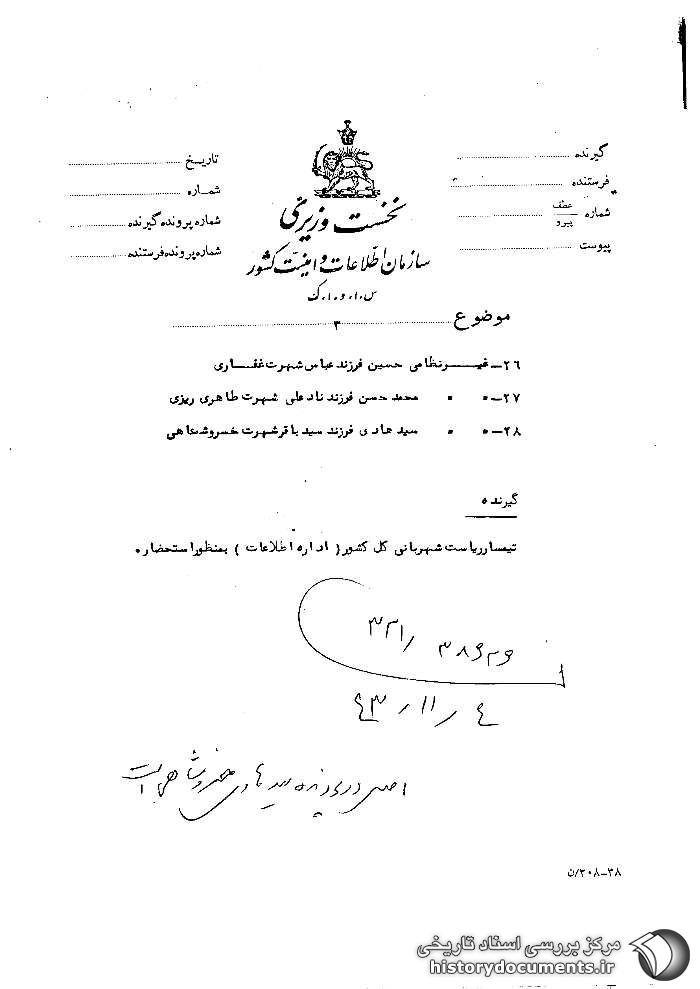 گیرنده
فرستنده
شماره عطف
پیرو
پیوست
تاریخ
شماره
شماره پرونده گیرنده
شماره پرونده فرستنده
نخست وزیری
سازمان اطلاعات و امنیت کشور
س.ا.و.ا.ک
موضوع ۳
۲۶- غیرنظامی حسین فرزند عباس شهرت غفاری
۲۷- " " محمد حسن فرزند نادعلی شهرت طاهری ریزی
۲۸- " " سید هادی فرزند سید باقر شهرت خسروشاهی
گیرنده
تیمسار ریاست شهربانی کل کشور ( اداره اطلاعات ) بمنظور استحضار.
۳۲۱/
۴/ ۱۱/ ۴۳
اصل در پرونده سید هادی خسروشاهی است
۳۸-۲۰۸/ن
مرکز بررسی اسناد تاریخی
historydocuments.ir